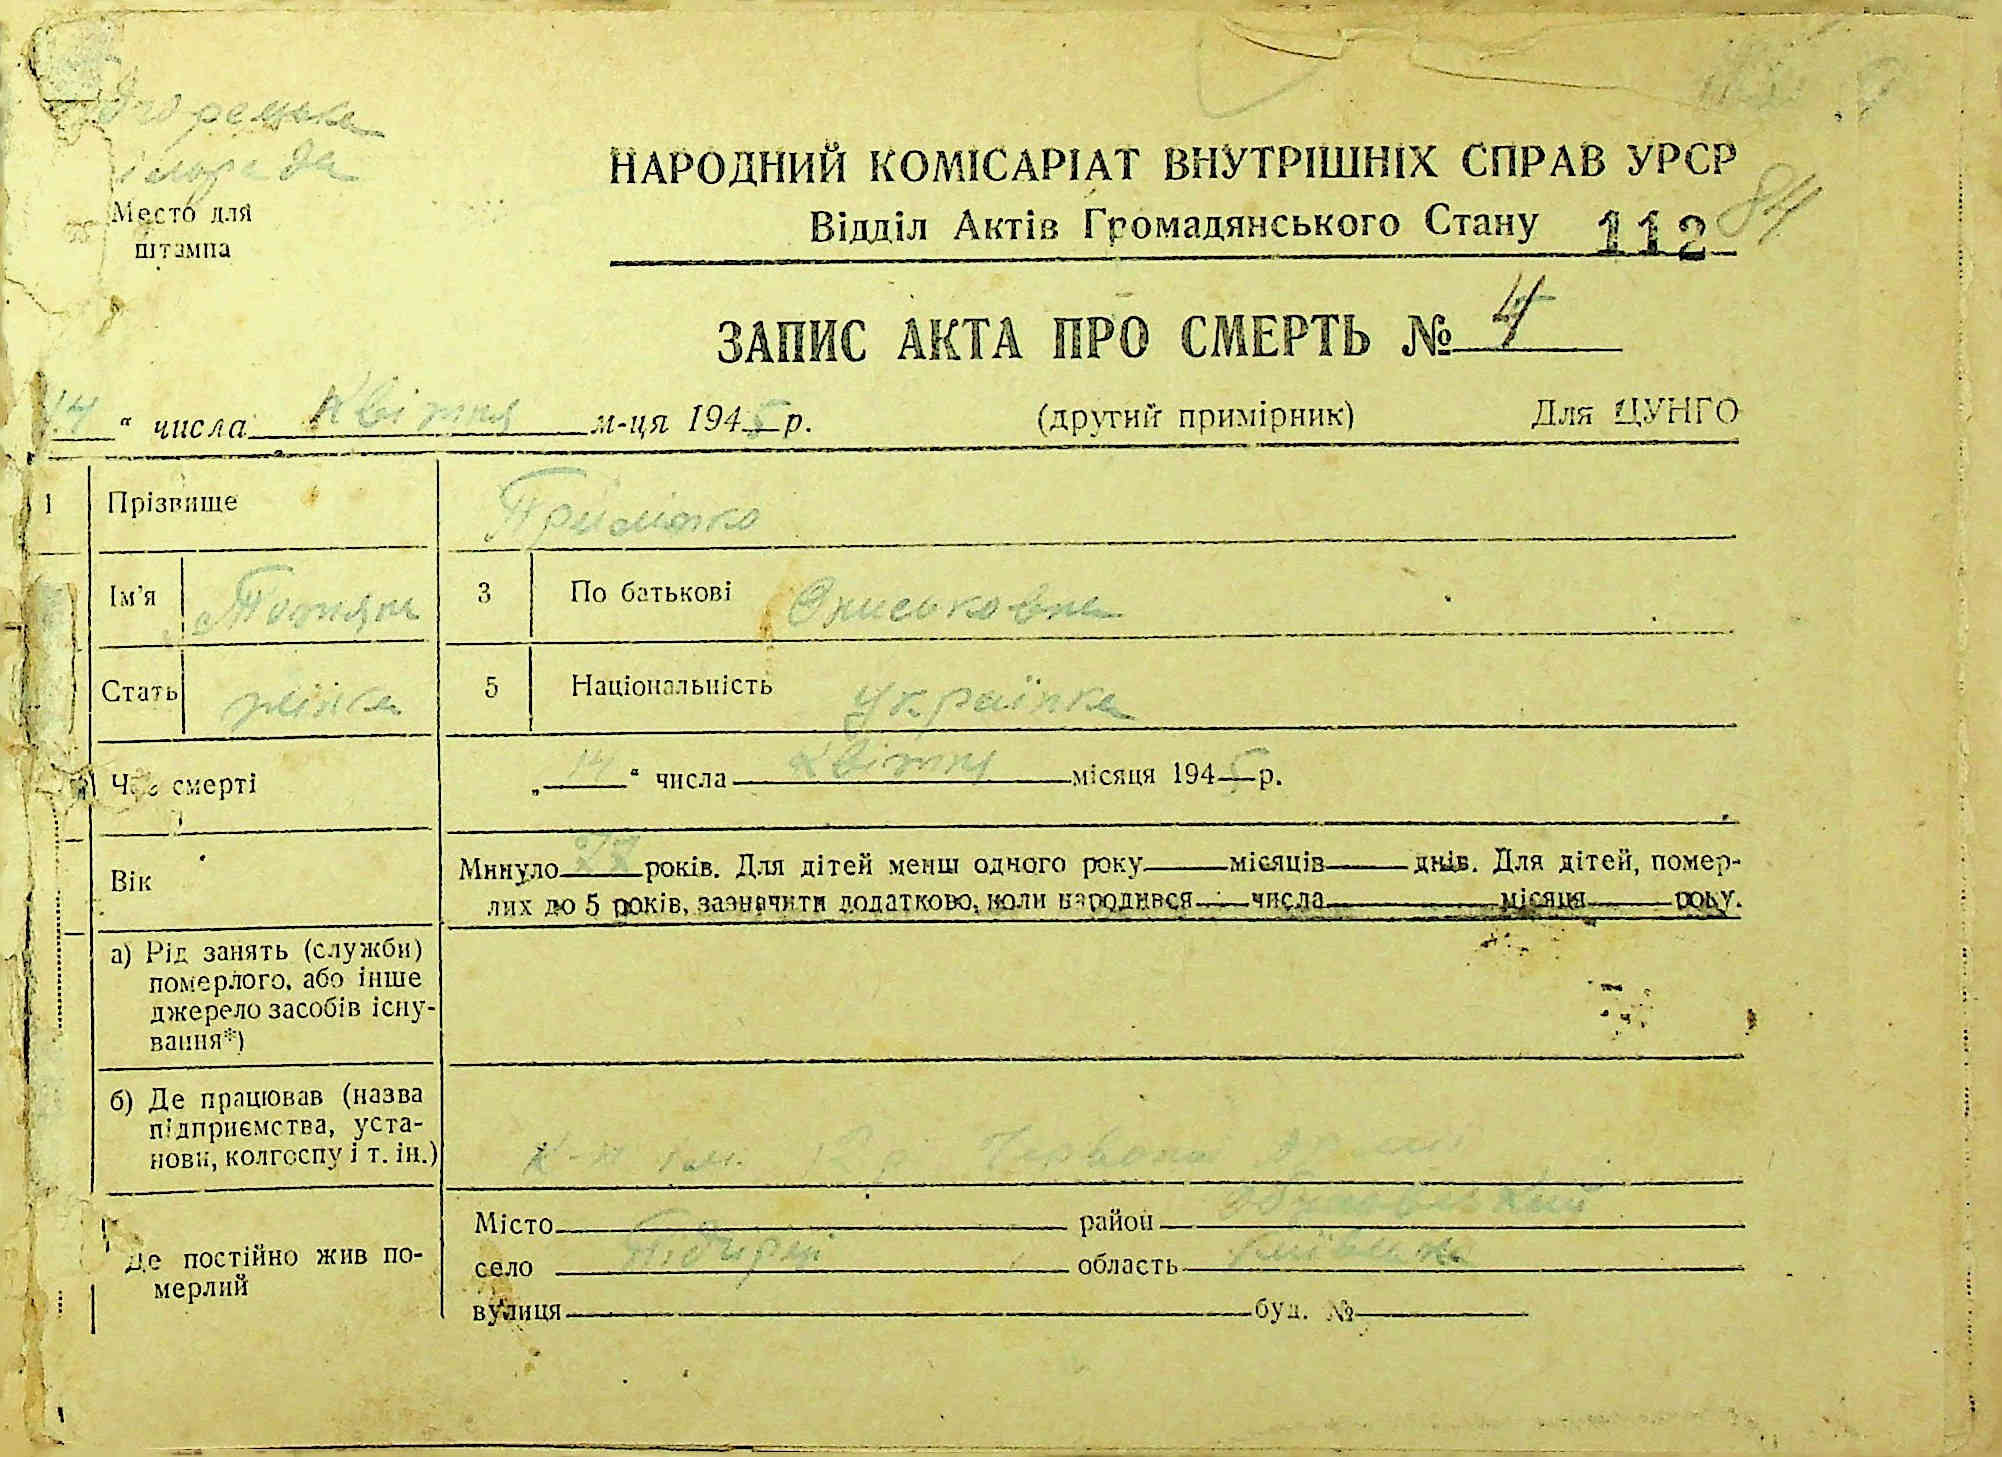 сільрада
Место для
штампа
НАРОДНИЙ КОМІСАРІАТ ВНУТРІШНІХ СПРАВ УРСР
Відділ Актів Громадянського Стану 112 84
ЗАПИС АКТА ПРО СМЕРТЬ № 4
14 “ числа Квітня м-ця 1945 р. (другий примірник) Для ЦУНГО
1 Прізвище
Ім'я Тотяна 3 По батькові Ониськовна
Стать жінка 5 Національність Українка
Час смерті „14“ числа Квітня місяця 1945 р.
Вік Минуло 77 років. Для дітей менш одного року місяців днів. Для дітей, помер-
лих до 5 років, зазначити додатково, коли народився числа місяця року.
а) Рід занять (служби)
померлого, або інше
джерело засобів існу-
вання*)
б) Де працював (назва
підприємства, уста-
нови, колгоспу і т. ін.)
К-п ім. Червоної армії
Де постійно жив по-
мерлий
Місто район Обухівський
село Підгірці область Київська
вулиця буд. №